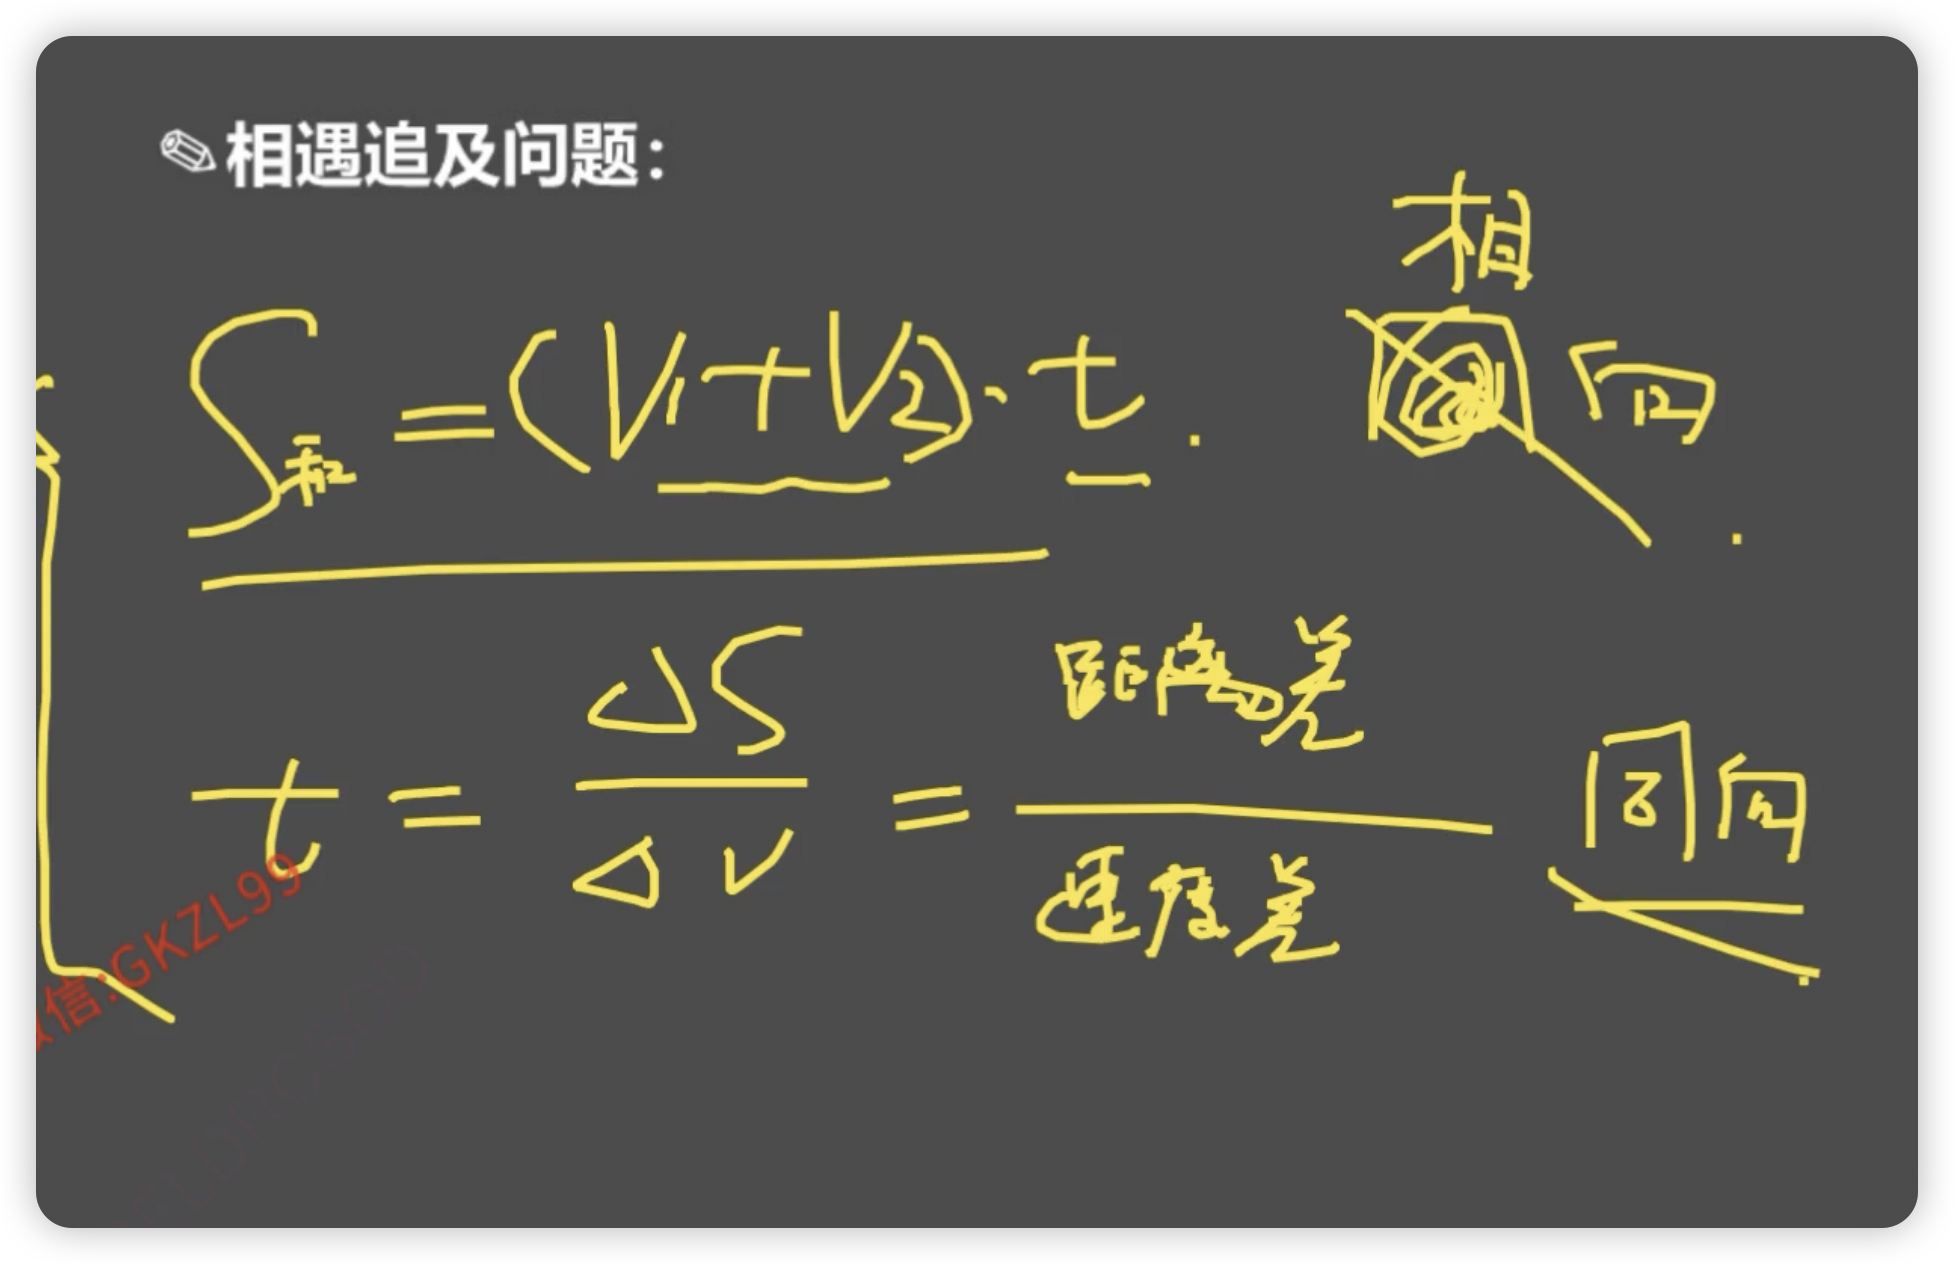 相遇追及问题：
S和 = (V1+V2)·t. 相向
t = ΔS/ΔV = 距离差/速度差 同向
信:GKZL99